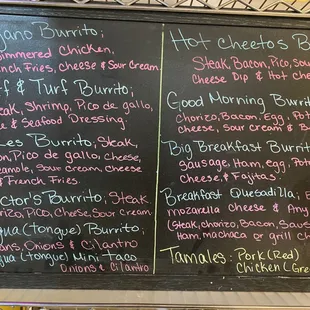 Burrito;
Simmered Chicken,
French Fries, Cheese & Sour Cream
& Turf Burrito;
Steak, Shrimp, Pico de gallo,
& Seafood Dressing.
Burrito; Steak,
Pico de gallo, Cheese,
Sour Cream, Cheese
& French Fries.
Burrito; Steak
Pico, Cheese, Sour Cream
(tongue) Burrito;
Onions & Cilantro
(tongue) Mini Taco
Onions & Cilantro
Hot Cheetos
Steak, Bacon, Pico, Sour
Cheese Dip & Hot
Good Morning Burrito
Chorizo, Bacon, Egg,
Cheese, Sour Cream &
Big Breakfast Burrito
Sausage, Ham, Egg,
Cheese, & Fajitas
Breakfast Quesadilla;
mozarella cheese & Any
(Steak, chorizo, Bacon,
Ham, machaca or grill
Tamales: Pork (Red)
Chicken